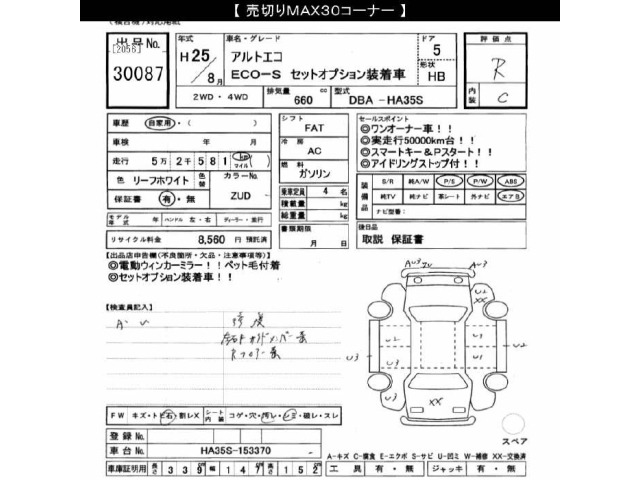 【 売切りMAX30コーナー 】
(検合機)対応用紙
出品No.
[2056]
30087
年式
H25/8月
車名・グレード
アルトエコ
ECO-S セットオプション装着車
ドア
5
形状
HB
評価点
R
内装
C
2WD・4WD
排気量 660 cc
型式 DBA -HA35S
車歴 自家用・( )
車検 年 月 日
走行 5万2千581 km マイル
色 リーフホワイト
色替
カラーNo.
ZUD
保証書 有・無
モデル年式 年 ハンドル 左・右 ディーラー・並行
リサイクル料金 8,560 円 預託済
シフト
FAT
冷房
AC
燃料
ガソリン
乗車定員 4 名
積載量 kg
総重量 kg
書類期限
月 日
セールスポイント
◎ワンオーナー車！！
◎実走行50000km台！！
◎スマートキー＆Pスタート！！
◎アイドリングストップ付！！
装備品
S/R 純A/W P/S P/W ABS
純TV 純ナビ 革シート 外ナビ エアB
ナビ型番:
後日品
取説 保証書
【出品店申告欄(不良箇所・欠品・注意事項等)】
◎電動ウィンカーミラー！！ペット毛付着
◎セットオプション装着車！！
【検査員記入】
A・U
修復
FW キズ・トビ石・割レX
シート内装 コゲ・穴・汚レ・シミ・破レ・スレ
登録No.
車台No. HA35S-153370
車庫証明用 長さ 339 cm 幅 147 cm 高さ 152 cm
AU3
ZU
A3
U2
XX
U3
U2
U3
U1
U1
U2
U3
XX
スペア
A-キズ C-腐食 E-エクボ S-サビ U-凹ミ W-補修 XX-交換済
工具 有・無 ジャッキ 有・無